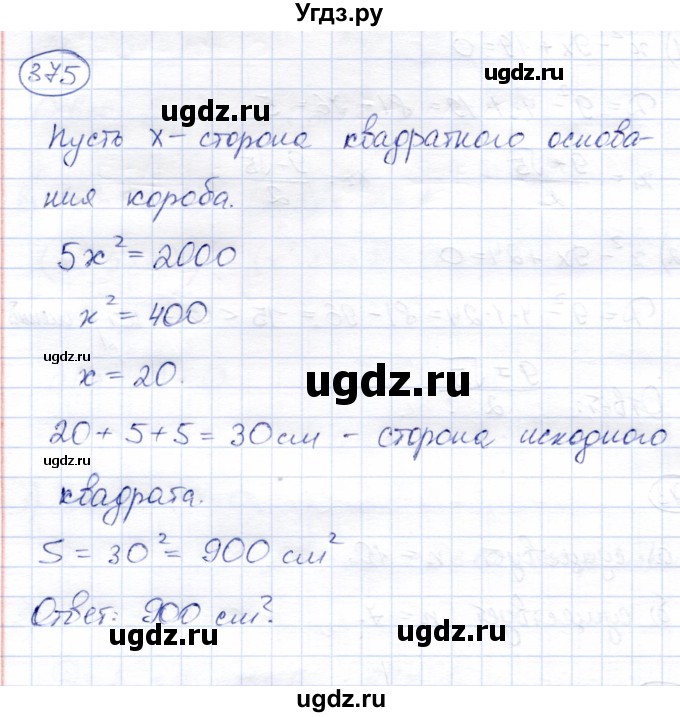 Угдз.ру
375
ugdz.ru
Пусть x - сторона квадратного основа-
ния короба.
ugdz.ru
5x² = 2000
x² = 400
ugdz.ru
x = 20.
ugdz.ru
20 + 5 + 5 = 30 см - сторона исходного
ugdz.ru
квадрата.
S = 30² = 900 см²
ugdz.ru
Ответ: 900 см².
ugdz.ru
ugdz.ru
ugdz.ru